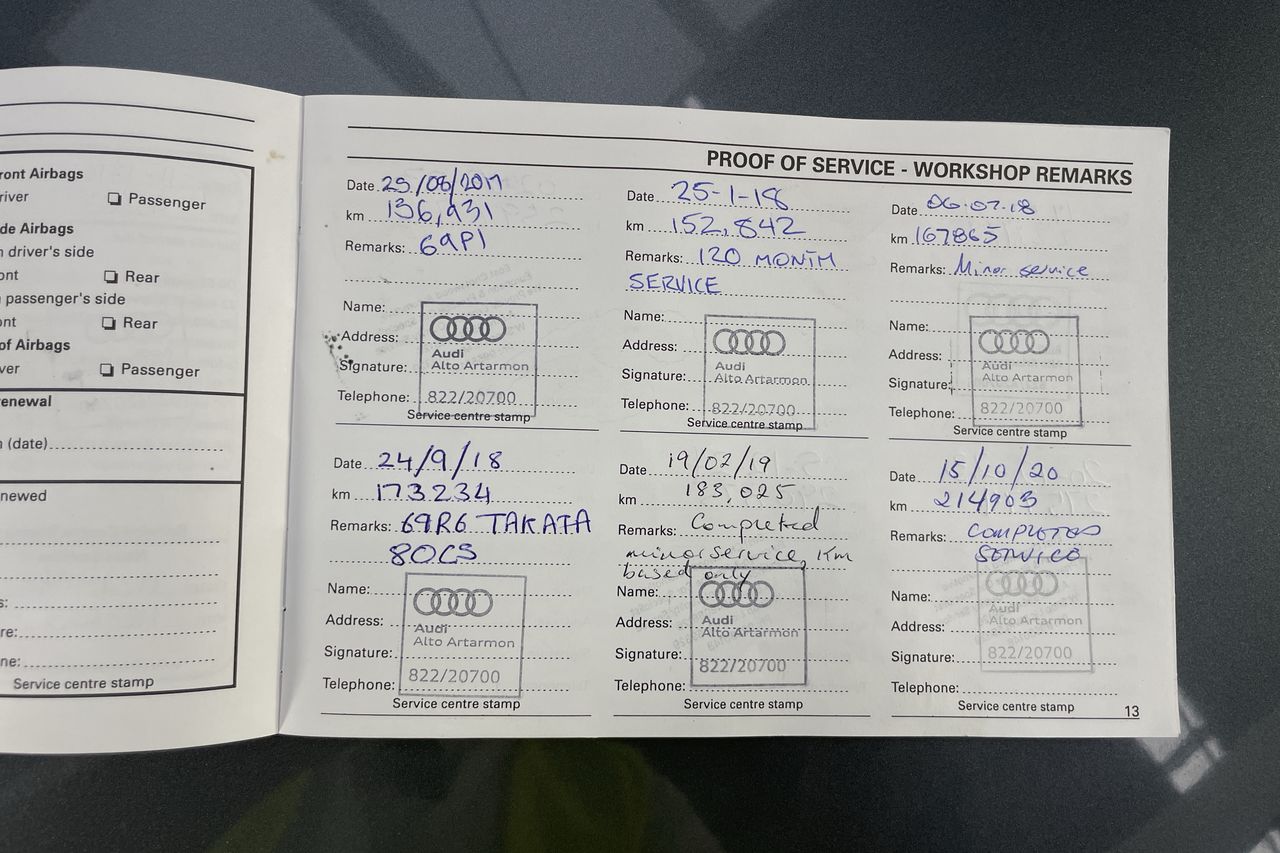 PROOF OF SERVICE - WORKSHOP REMARKS
ront Airbags
river ❑ Passenger
de Airbags
n driver's side
ont ❑ Rear
passenger's side
nt ❑ Rear
of Airbags
ver ❑ Passenger
enewal
n (date)
newed
s:
re:
ne:
Service centre stamp
Date 29/08/2017
km 136,931
Remarks: 69P1
Name:
Address:
Signature:
Telephone:
Audi
Alto Artarmon
822/20700
Service centre stamp
Date 25-1-18
km 152,842
Remarks: 120 MONTH
SERVICE
Name:
Address:
Signature:
Telephone:
Audi
Alto Artarmon
822/20700
Service centre stamp
Date 06.07.18
km 167865
Remarks: Minor service
Name:
Address:
Signature:
Telephone:
Audi
Alto Artarmon
822/20700
Service centre stamp
Date 24/9/18
km 173234
Remarks: 69R6 TAKATA
80CS
Name:
Address:
Signature:
Telephone:
Audi
Alto Artarmon
822/20700
Service centre stamp
Date 19/02/19
km 183,025
Remarks: Completed
minor service, Km
based only
Name:
Address:
Signature:
Telephone:
Audi
Alto Artarmon
822/20700
Service centre stamp
Date 15/10/20
km 214903
Remarks: COMPLETED
SERVICE
Name:
Address:
Signature:
Telephone:
Audi
Alto Artarmon
822/20700
Service centre stamp
13